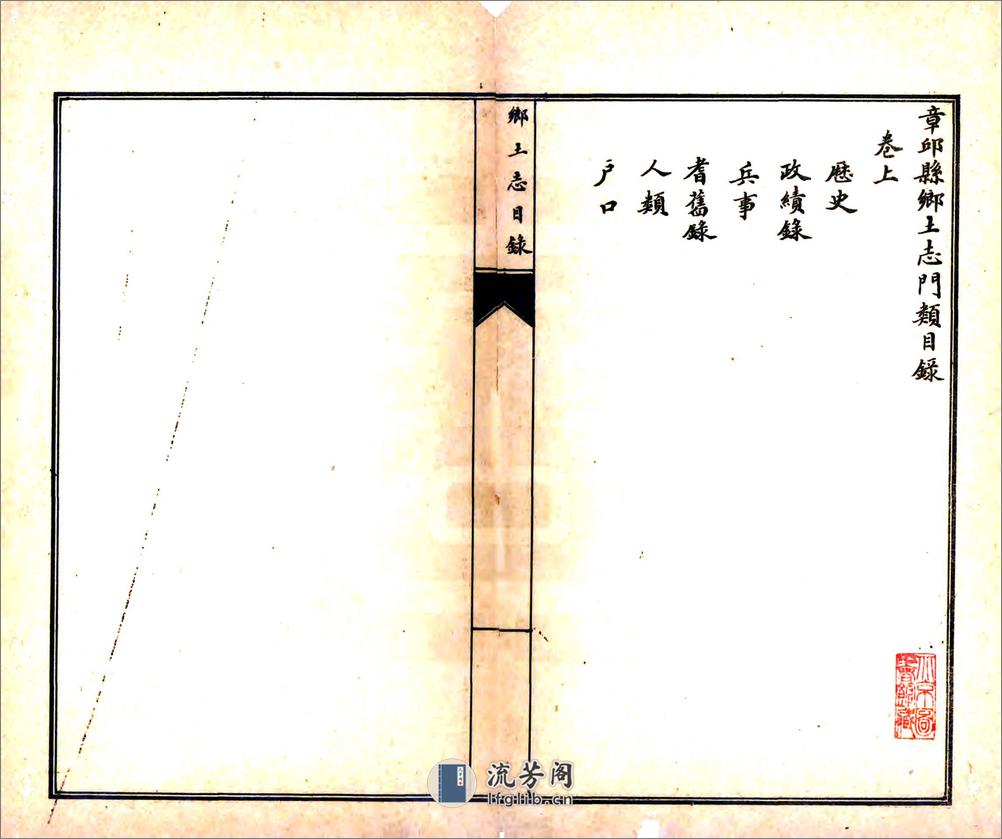 章邱縣鄉土志門類目錄
卷上
歷史
政績錄
兵事
耆舊錄
人類
戶口
鄉土志目錄
流芳阁
lfglib.cn